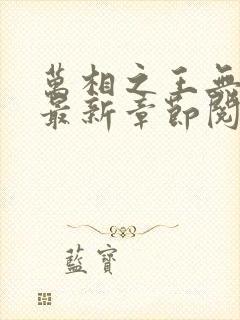 萬相之王無
最新章節閱
藍寶